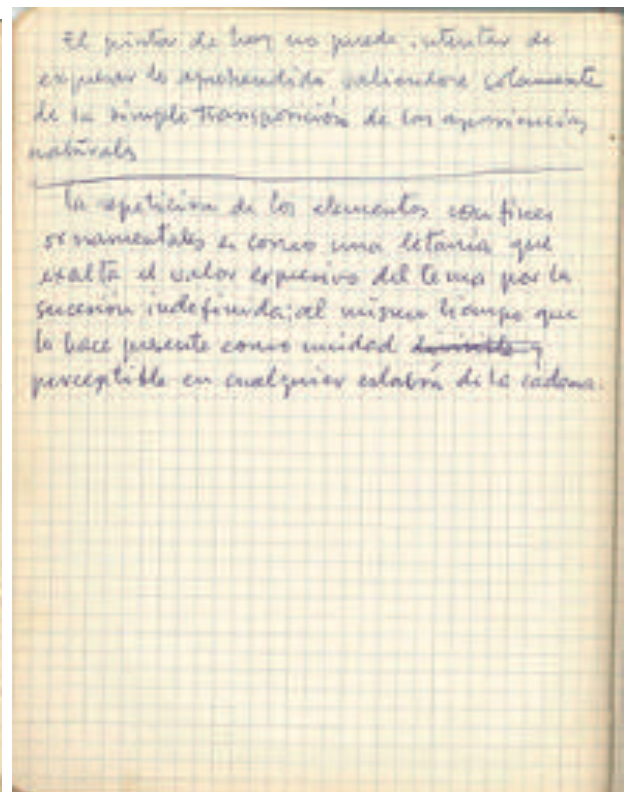 El pintor de hoy no puede intentar de
expresar lo aprehendido valiendose solamente
de la simple transposición de las apariencias
naturales
la repetición de los elementos con fines
ornamentales es como una letanía que
exalta el valor expresivo del tema por la
sucesión indefinida; al mismo tiempo que
lo hace presente como unidad divisible y
perceptible en cualquier eslabón de la cadena.